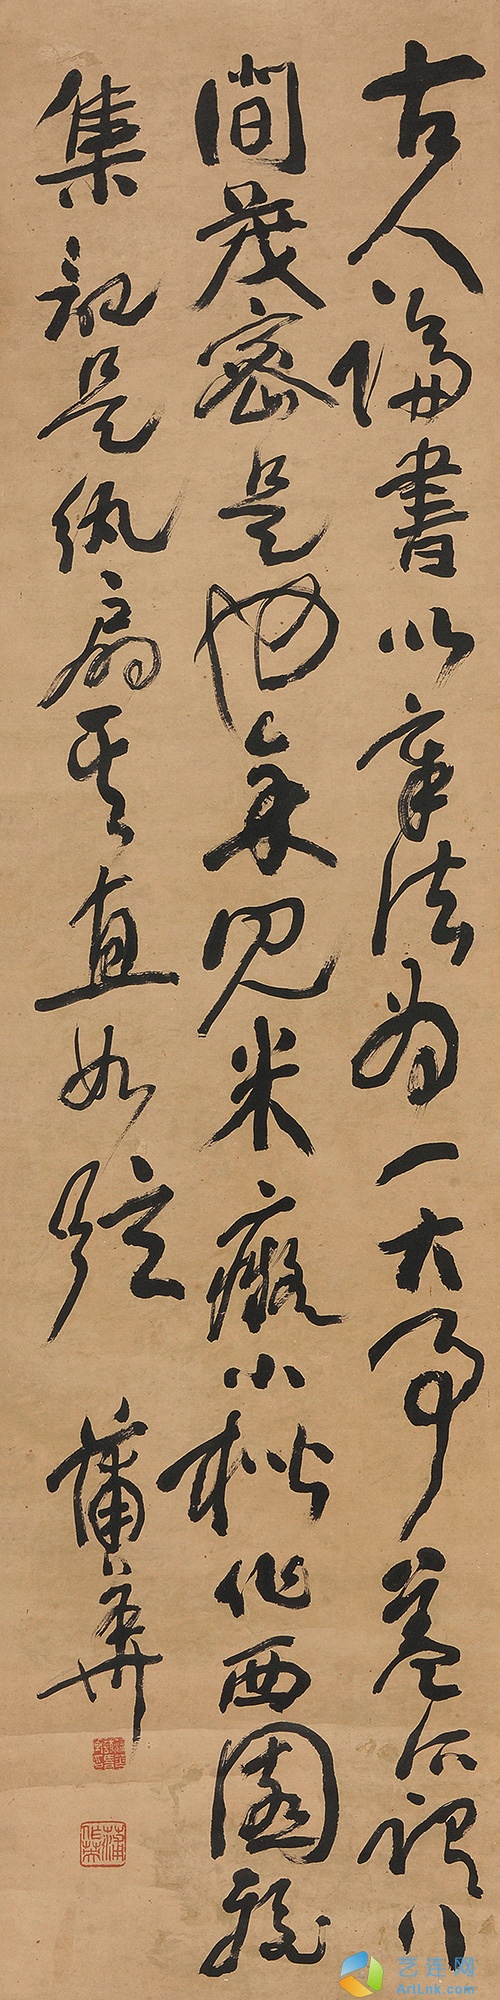 古人論書以章法為一大事蓋所謂行
間茂密是也余見米癡小楷作西園雅
集記是紈扇其直如弦
蒲華
蒲華
作英
艺连网
ArtLnk.com